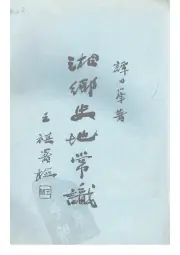 譚日峯著
湘鄉史地常識
王祺署檢